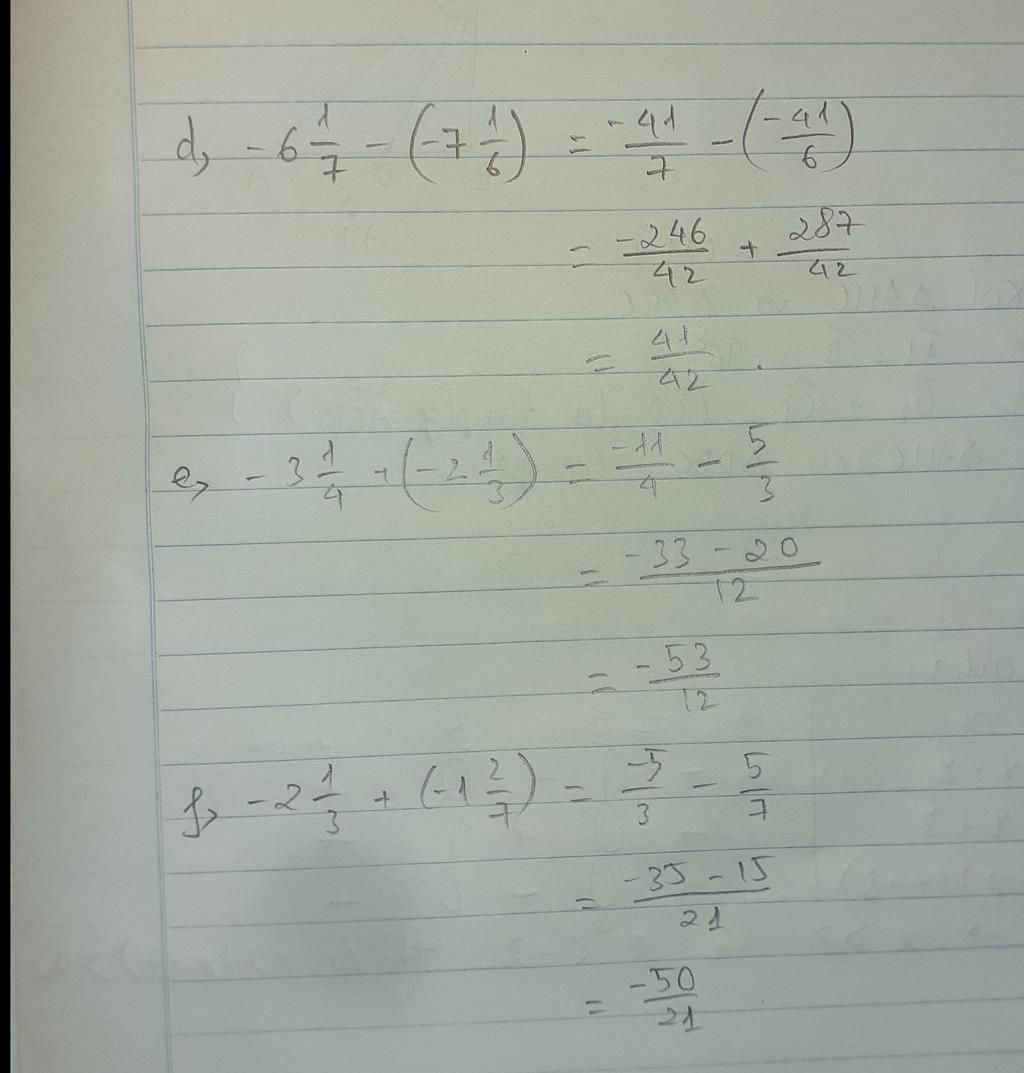 d, -6 1/7 - (-7 1/6) = -41/7 - (-41/6)
= -246/42 + 287/42
= 41/42 .
e, -3 1/4 + (-2 1/3) = -11/4 - 5/3
= (-33 - 20)/12
= -53/12
f, -2 1/3 + (-1 2/7) = -5/3 - 5/7
= (-35 - 15)/21
= -50/21